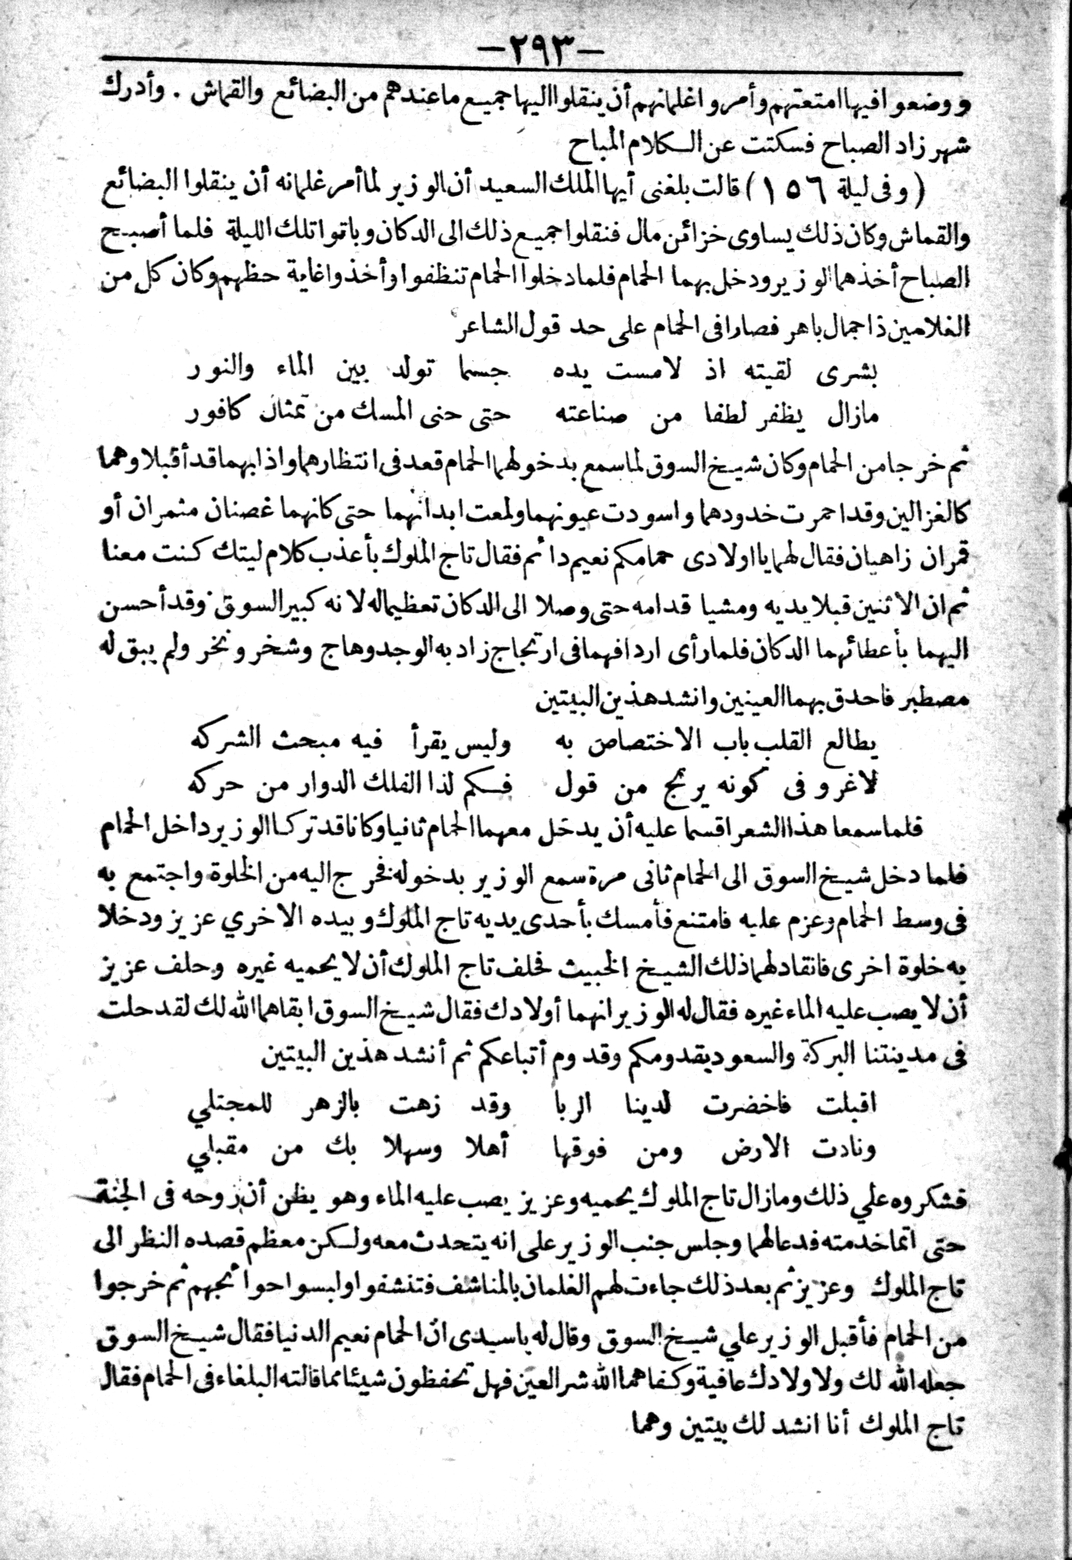 —٢٩٣—
ووضعوا فيها امتعتهم وأمروا غلمانهم أن ينقلوا اليها جميع ما عندهم من البضائع والقماش . وأدرك
شهرزاد الصباح فسكتت عن الكلام المباح
(وفى ليلة ١٥٦) قالت بلغنى أيها الملك السعيد أن الوزير لما أمر غلمانه أن ينقلوا البضائع
والقماش وكان ذلك يساوى خزائن مال فنقلوا جميع ذلك الى الدكان وباتوا تلك الليلة فلما أصبح
الصباح أخذهما الوزير ودخل بهما الحمام فلما دخلوا الحمام تنظفوا وأخذوا غاية حظهم وكان كل من
الغلامين ذا جمال باهر فصارا فى الحمام على حد قول الشاعر
بشرى لقيته اذ لامست يده جسما تولد بين الماء والنور
مازال يظفر لطفا من صناعته حتى حنى المسك من تمثال كافور
ثم خرجا من الحمام وكان شيخ السوق لما سمع بدخولهما الحمام قعد فى انتظارهما واذا بهما قد أقبلا وهما
كالغزالين وقد احمرت خدودهما واسودت عيونهما ولمعت ابدانهما حتى كانهما غصنان مثمران أو
قمران زاهيان فقال لهما يا اولادى حمامكم نعيم دائم فقال تاج الملوك بأعذب كلام ليتك كنت معنا
ثم ان الاثنين قبلا يديه ومشيا قدامه حتى وصلا الى الدكان تعظيما له لانه كبير السوق وقد أحسن
اليهما بأعطائهما الدكان فلما رأى اردافهما فى ارتجاج زاد به الوجد وهاج وشخر ونخر ولم يبق له
مصطبر فاحدق بهما العينين وانشد هذين البيتين
يطالع القلب باب الاختصاص به وليس يقرأ فيه مبحث الشركه
لاغرو فى كونه يرتج من قول فكم لذا الفلك الدوار من حركه
فلما سمعا هذا الشعر اقسما عليه أن يدخل معهما الحمام ثانيا وكانا قد تركا الوزير داخل الحمام
فلما دخل شيخ السوق الى الحمام ثانى مرة سمع الوزير بدخوله فخرج اليه من الخلوة واجتمع به
فى وسط الحمام وعزم عليه فامتنع فأمسك بأحدى يديه تاج الملوك وبيده الاخري عزيز ودخلا
به خلوة اخرى فانقاد لهما ذلك الشيخ الخبيث فحلف تاج الملوك أن لا يحميه غيره وحلف عزيز
أن لا يصب عليه الماء غيره فقال له الوزير انهما أولادك فقال شيخ السوق ابقاهما الله لك لقد حلت
فى مدينتنا البركة والسعود بقدومكم وقدوم أتباعكم ثم أنشد هذين البيتين
اقبلت فاخضرت لدينا الربا وقد زهت بالزهر للمجتلي
ونادت الارض ومن فوقها أهلا وسهلا بك من مقبلي
فشكروه علي ذلك ومازال تاج الملوك يحميه وعزيز يصب عليه الماء وهو يظن أن روحه فى الجنة
حتى اتما خدمته فدعا لهما وجلس جنب الوزير على انه يتحدث معه ولكن معظم قصده النظر الى
تاج الملوك وعزيز ثم بعد ذلك جاءت لهم الغلمان بالمناشف فتنشفوا ولبسوا حوائجهم ثم خرجوا
من الحمام فأقبل الوزير علي شيخ السوق وقال له ياسيدى ان الحمام نعيم الدنيا فقال شيخ السوق
جعله الله لك ولاولادك عافية وكفاهما الله شر العين فهل تحفظون شيئا مما قالته البلغاء فى الحمام فقال
تاج الملوك أنا انشد لك بيتين وهما